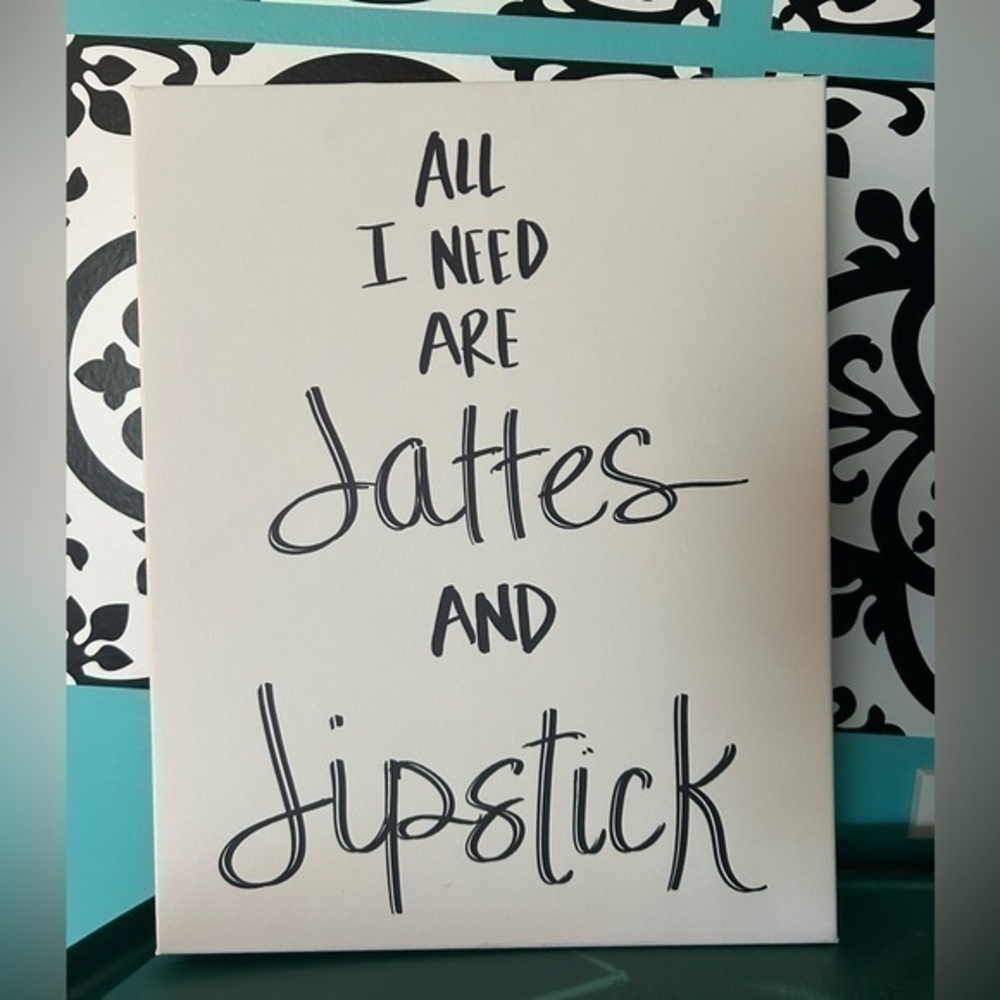 ALL
I NEED
ARE
Lattes
AND
Lipstick